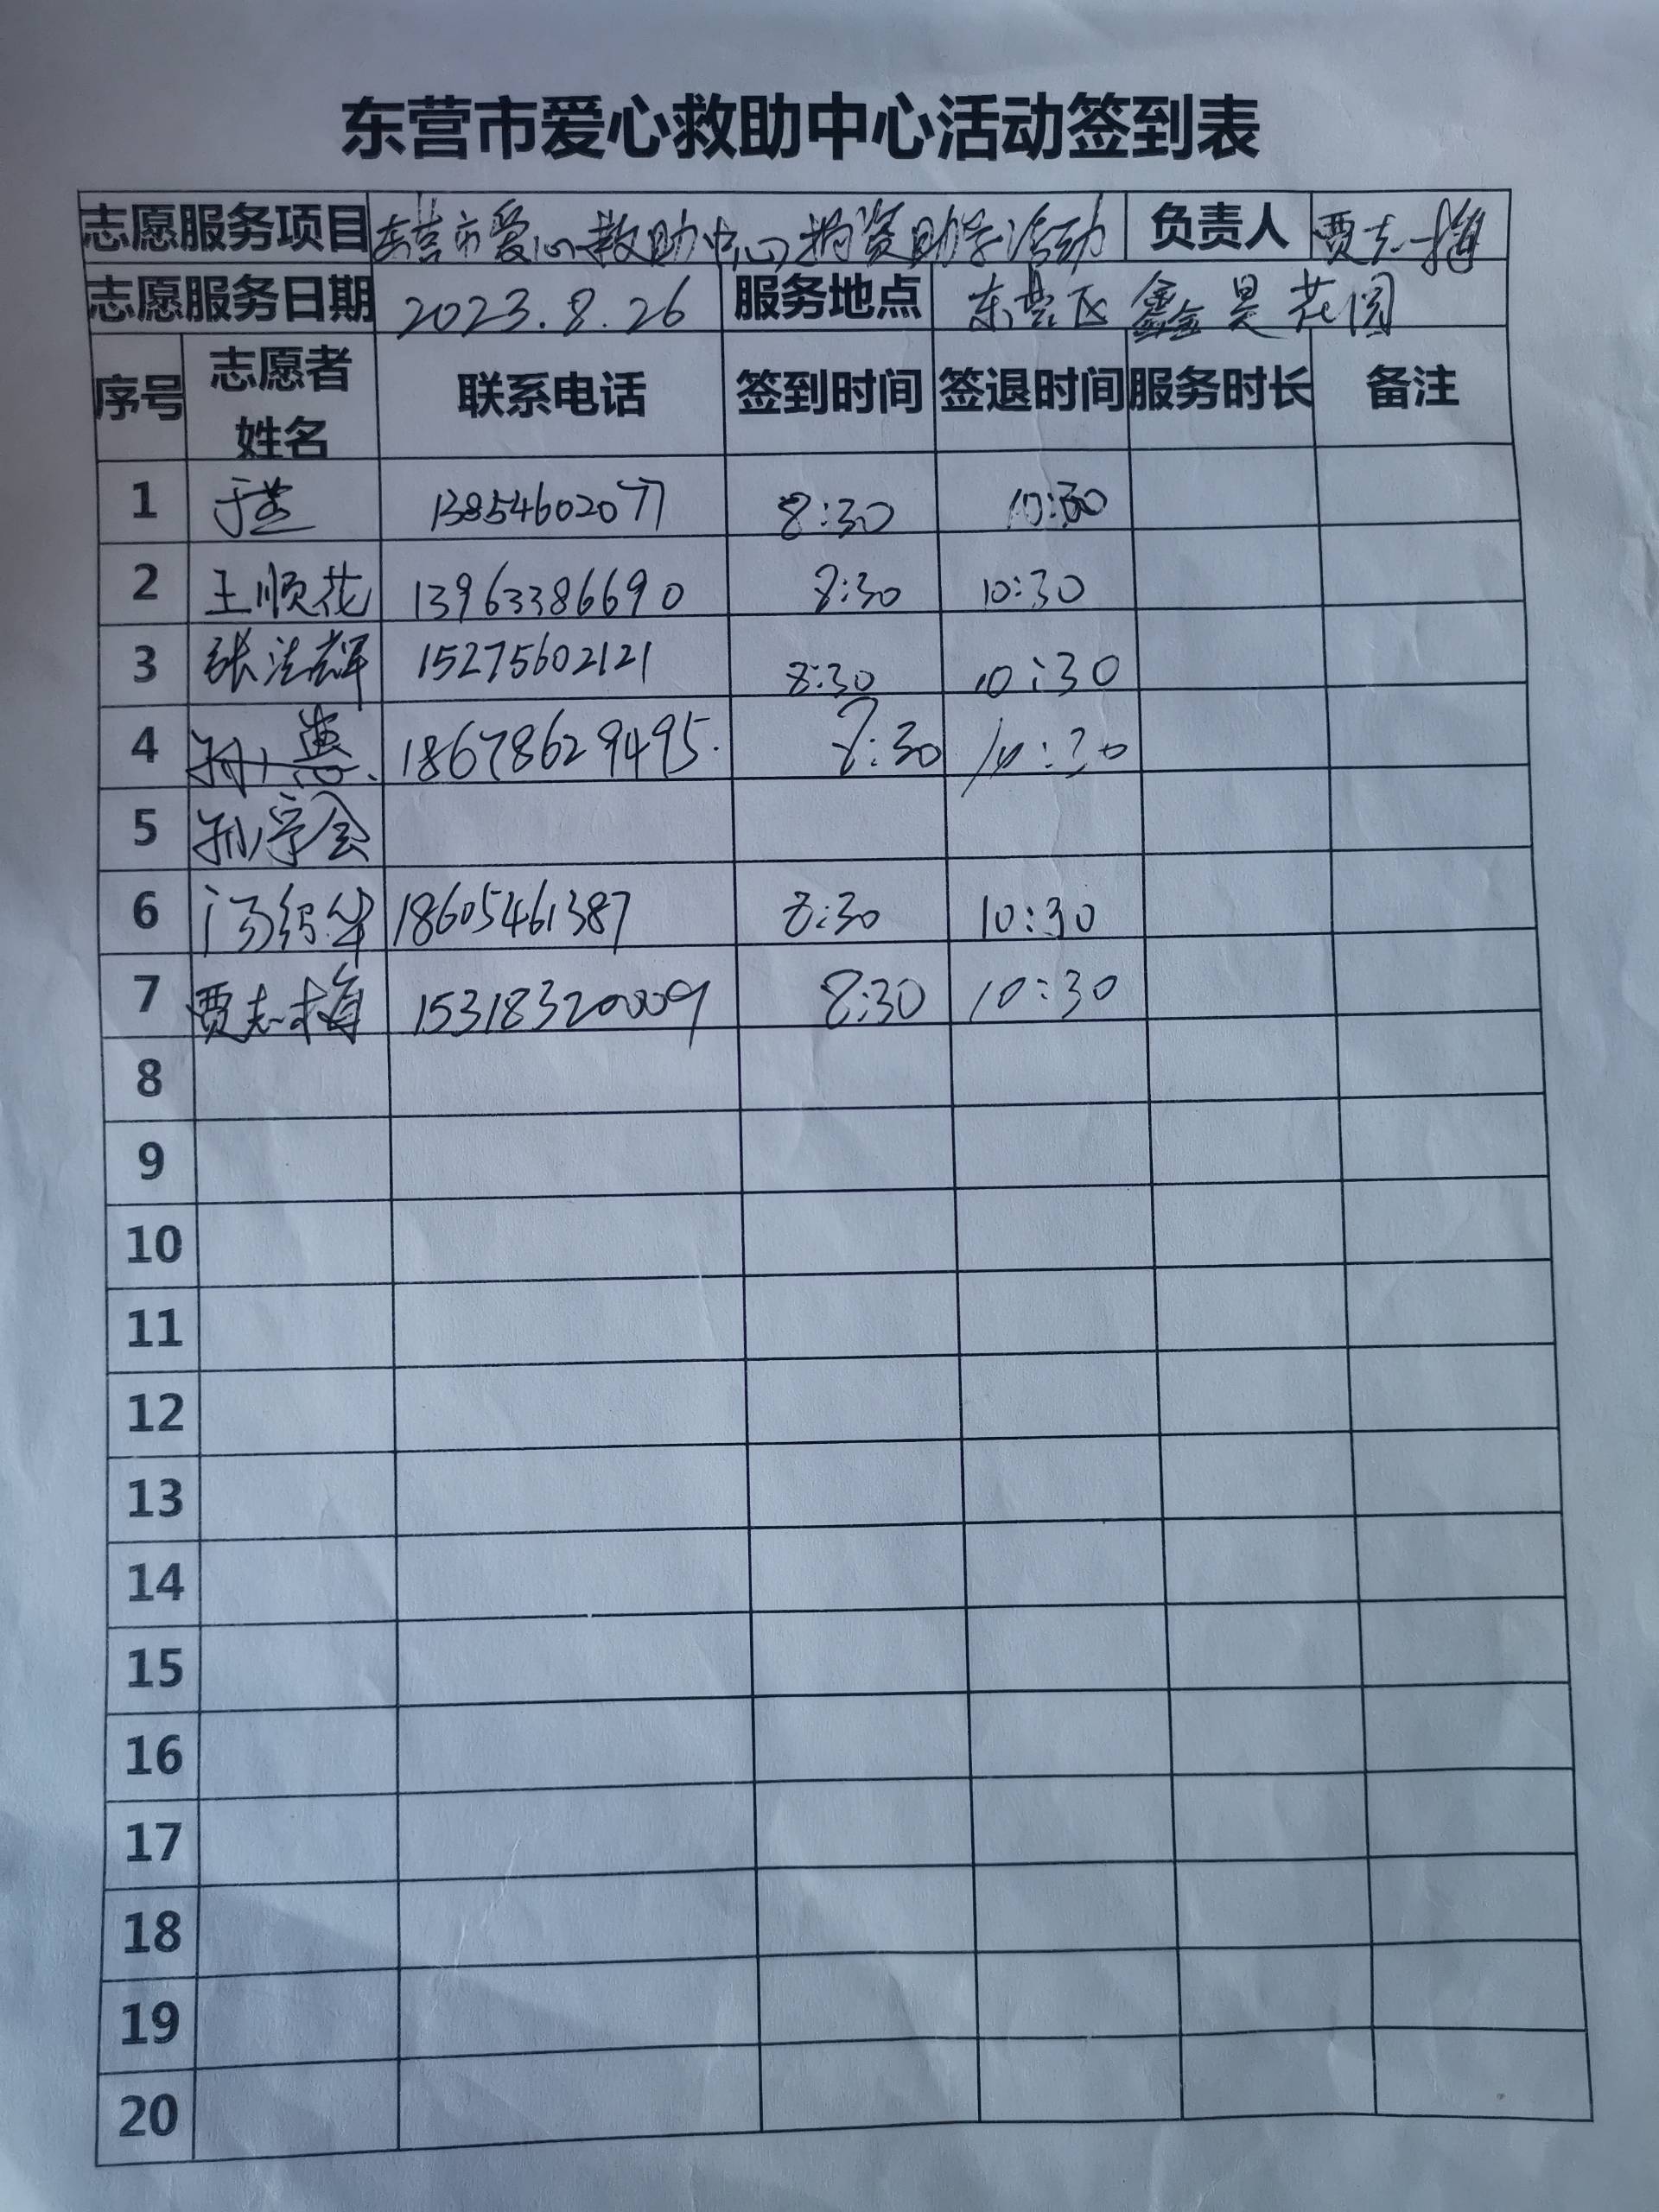 东营市爱心救助中心活动签到表
志愿服务项目 东营市爱心救助中心捐资助学活动 负责人 贾志梅
志愿服务日期 2023.8.26 服务地点 东营区鑫昊花园
序号 志愿者姓名 联系电话 签到时间 签退时间 服务时长 备注
1 13854602077 8:30 10:30
2 王顺花 13963386690 8:30 10:30
3 张洪辉 15275602121 8:30 10:30
4 18678629495. 8:30 10:30
5
6 18605461387 8:30 10:30
7 贾志梅 15318320009 8:30 10:30
8
9
10
11
12
13
14
15
16
17
18
19
20